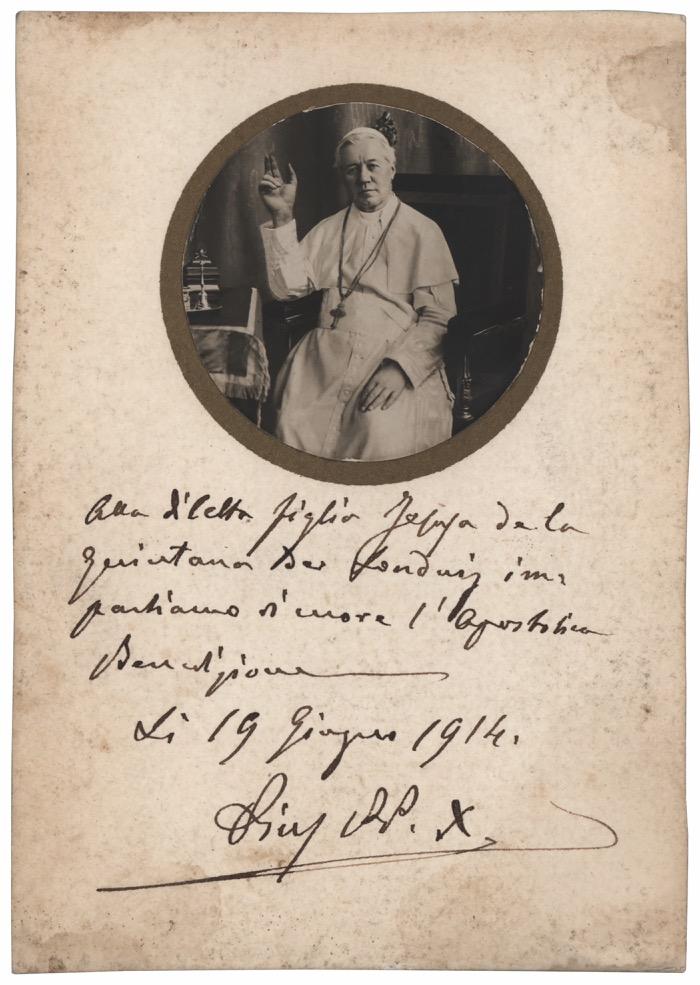 Alla diletta figlia de la
Quintana im-
partiamo di cuore l'Apostolica
Benedizione
Li 19 Giugno 1914.
Pius PP. X.